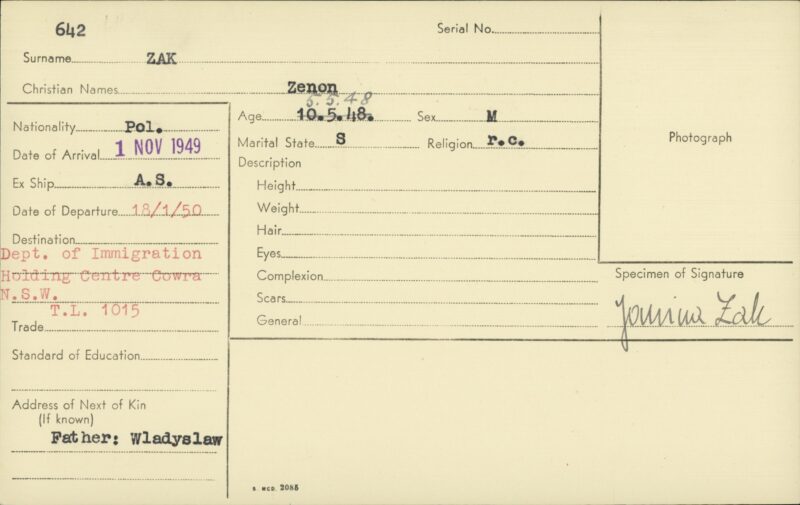 642
Serial No.
Surname ZAK
Christian Names Zenon
5.5.48
Age 10.5.48. Sex M
Nationality Pol.
Marital State S Religion r.c.
Date of Arrival 1 NOV 1949
Description
Ex Ship A.S.
Height
Date of Departure 18/1/50
Weight
Hair
Destination
Dept. of Immigration
Holding Centre Cowra
N.S.W.
T.L. 1015
Eyes
Complexion
Scars
General
Trade
Standard of Education
Address of Next of Kin
(If known)
Father: Wladyslaw
Photograph
Specimen of Signature
Janina Zak
S. MCD. 2085